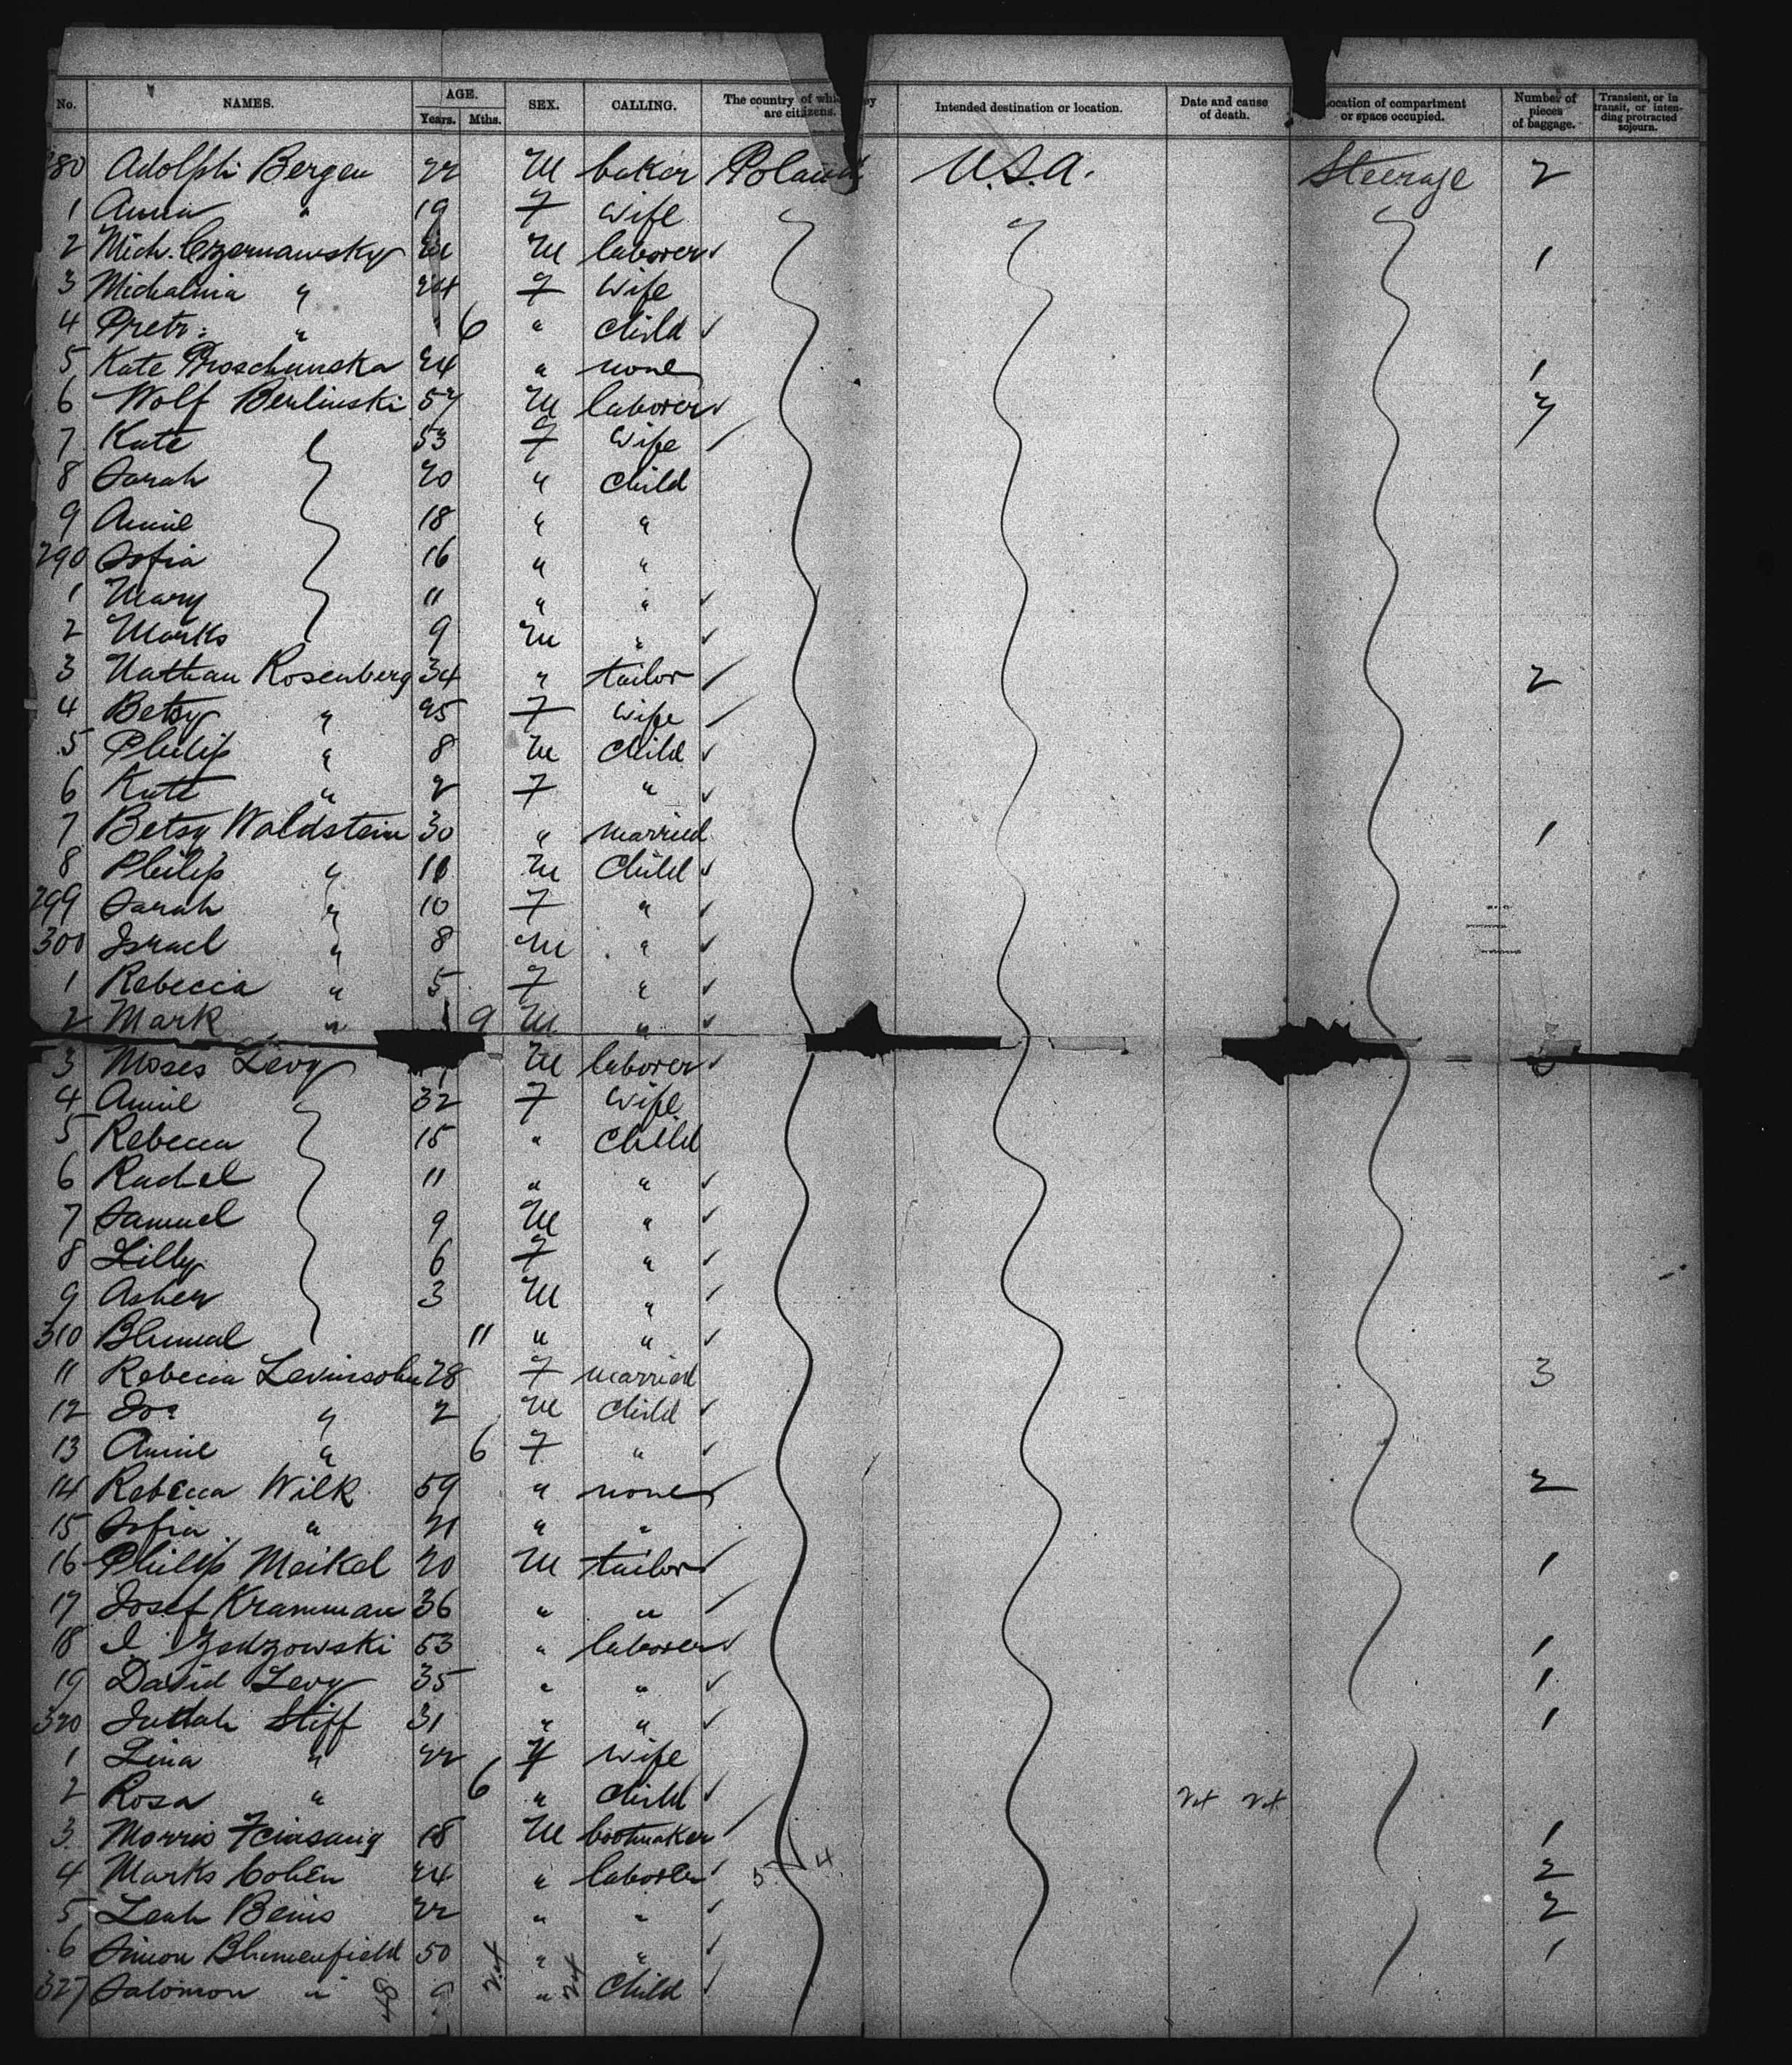 No. NAMES. AGE. Years. Mths. SEX. CALLING. The country of which they are citizens. Intended destination or location. Date and cause of death. Location of compartment or space occupied. Number of pieces of baggage. Transient, or in transit, or intending protracted sojourn.
280 Adolph Bergen 22 M baker Poland U.S.A. Steerage 2
1 Anna " 19 F wife
2 Mich. Czernawsky M laborer 1
3 Michalina " 24 F wife
4 Pretr: " 6 " child
5 Kate Proschunska 24 " none 1
6 Wolf Berlinski 57 M laborer 7
7 Kate 53 F wife
8 Sarah 20 " child
9 Annie 18 " "
290 Sofia 16 " "
1 Mary 11 " "
2 Marks 9 M "
3 Nathan Rosenberg 34 " tailor 2
4 Betsy " 25 F wife
5 Philip " 8 M child
6 Kate " 2 F "
7 Betsy Waldstein 30 " married 1
8 Philip " 11 M child
299 Sarah " 10 F "
300 Israel " 8 M "
1 Rebecca " 5 F "
2 Mark " 9 M "
3 Moses Levy M laborer
4 Annie 32 F wife
5 Rebecca 15 " child
6 Rachel 11 " "
7 Samuel 9 M "
8 Lilly 6 F "
9 Asher 3 M "
310 Blumal 11 " "
11 Rebecca Levinsohn 28 F married 3
12 Jos: " 2 M child
13 Annie " 6 F "
14 Rebecca Wilk 59 " none 2
15 Sofia " 21 " "
16 Philip Meikel 20 M tailor 1
17 Josef Kramman 36 " "
18 I. Zedzowski 53 " laborer 1
19 David Levy 35 " " 1
320 Juttah Stiff 31 " " 1
1 Lina " 22 F wife
2 Rosa " 6 " child
3 Morris Feinsang 18 M bootmaker 1
4 Marks Cohen 24 " laborer 5 4 2
5 Leah Benis 22 " " 2
6 Simon Blumenfield 50 " " 1
327 Salomon " 9 " child
48